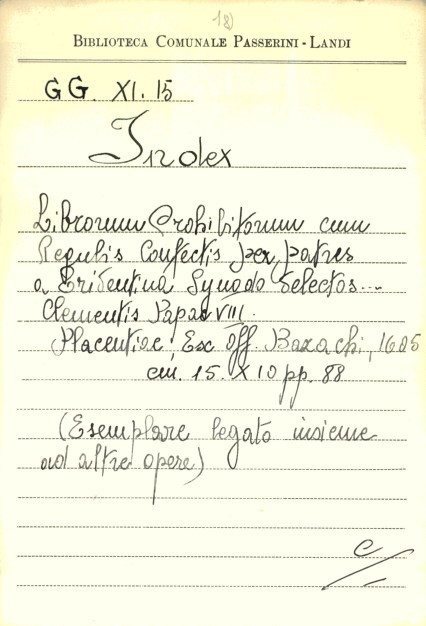 18)
BIBLIOTECA COMUNALE PASSERINI-LANDI
GG. XI. 15
Index
Librorum Prohibitorum cum
Regulis Confectis per patres
a Tridentina Synodo delectos...
Clementis Papae VIII.
Placentiae, Ex Off. Bazachi, 1605
cm. 15 X 10 pp. 88
(Esemplare legato insieme
ad altre opere)